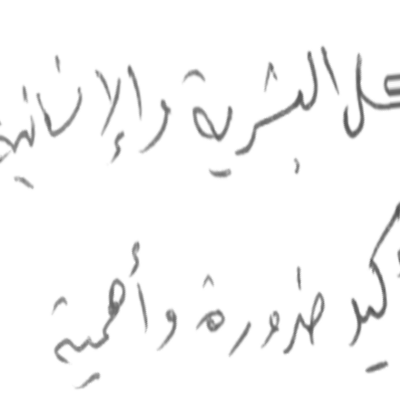 كل البشرية والإنسانية
كيد ضرورة وأهمية